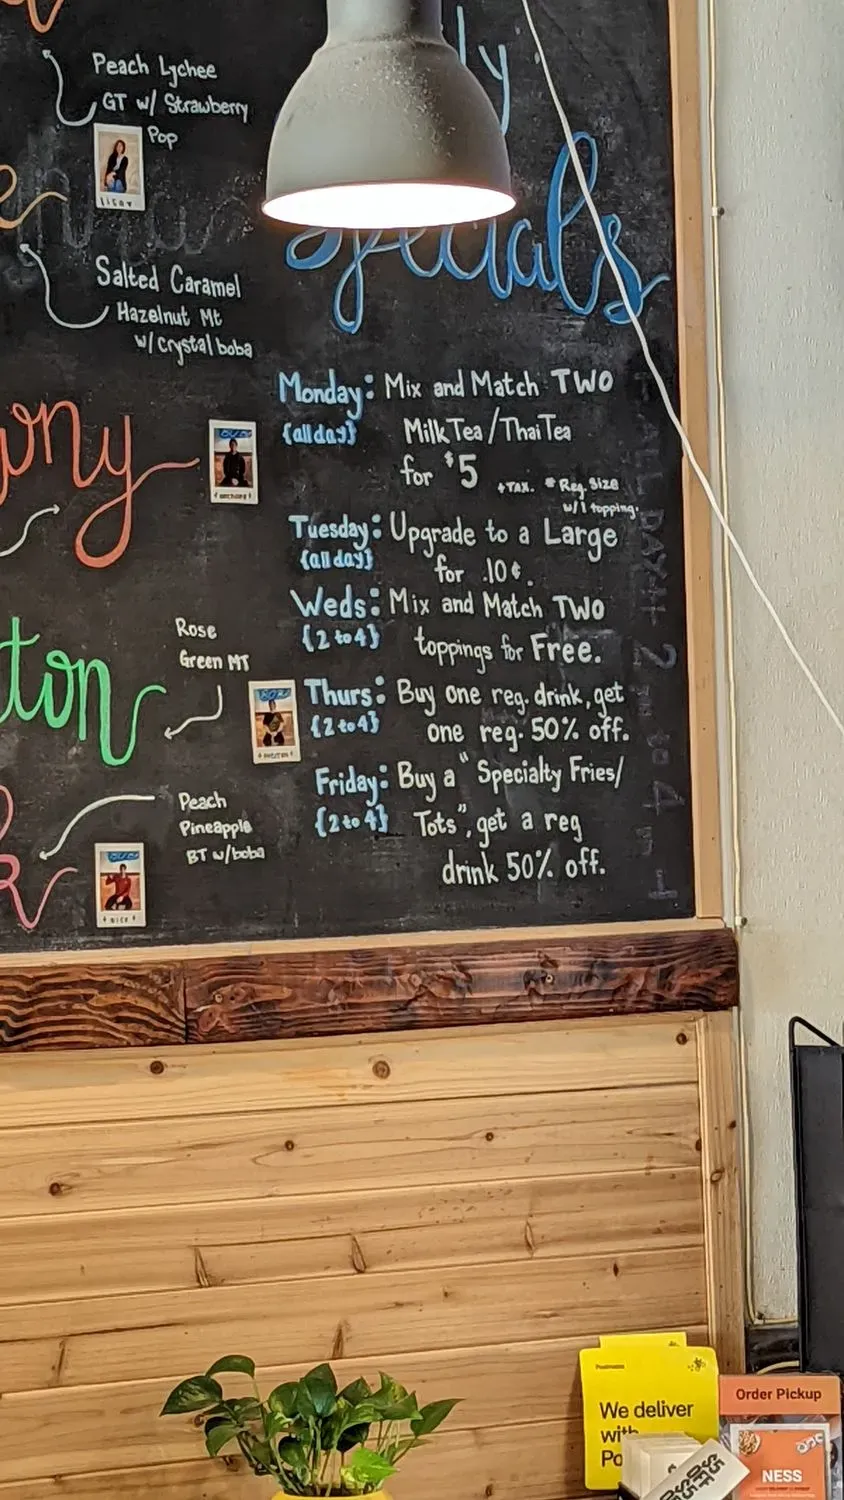 Peach Lychee
GT w/ Strawberry
Pop
Salted Caramel
Hazelnut Mt
w/crystal boba
Rose
Green MT
Peach
Pineapple
BT w/boba
Specials
Monday: Mix and Match TWO
{all day} Milk Tea/Thai Tea
for $5 +TAX. * Reg. Size
w/1 topping.
Tuesday: Upgrade to a Large
{all day} for .10¢.
Weds: Mix and Match TWO
{2 to 4} toppings for Free.
Thurs: Buy one reg. drink, get
{2 to 4} one reg. 50% off.
Friday: Buy a "Specialty Fries/
{2 to 4} Tots", get a reg
drink 50% off.
Postmates
We deliver
with
Order Pickup
NESS